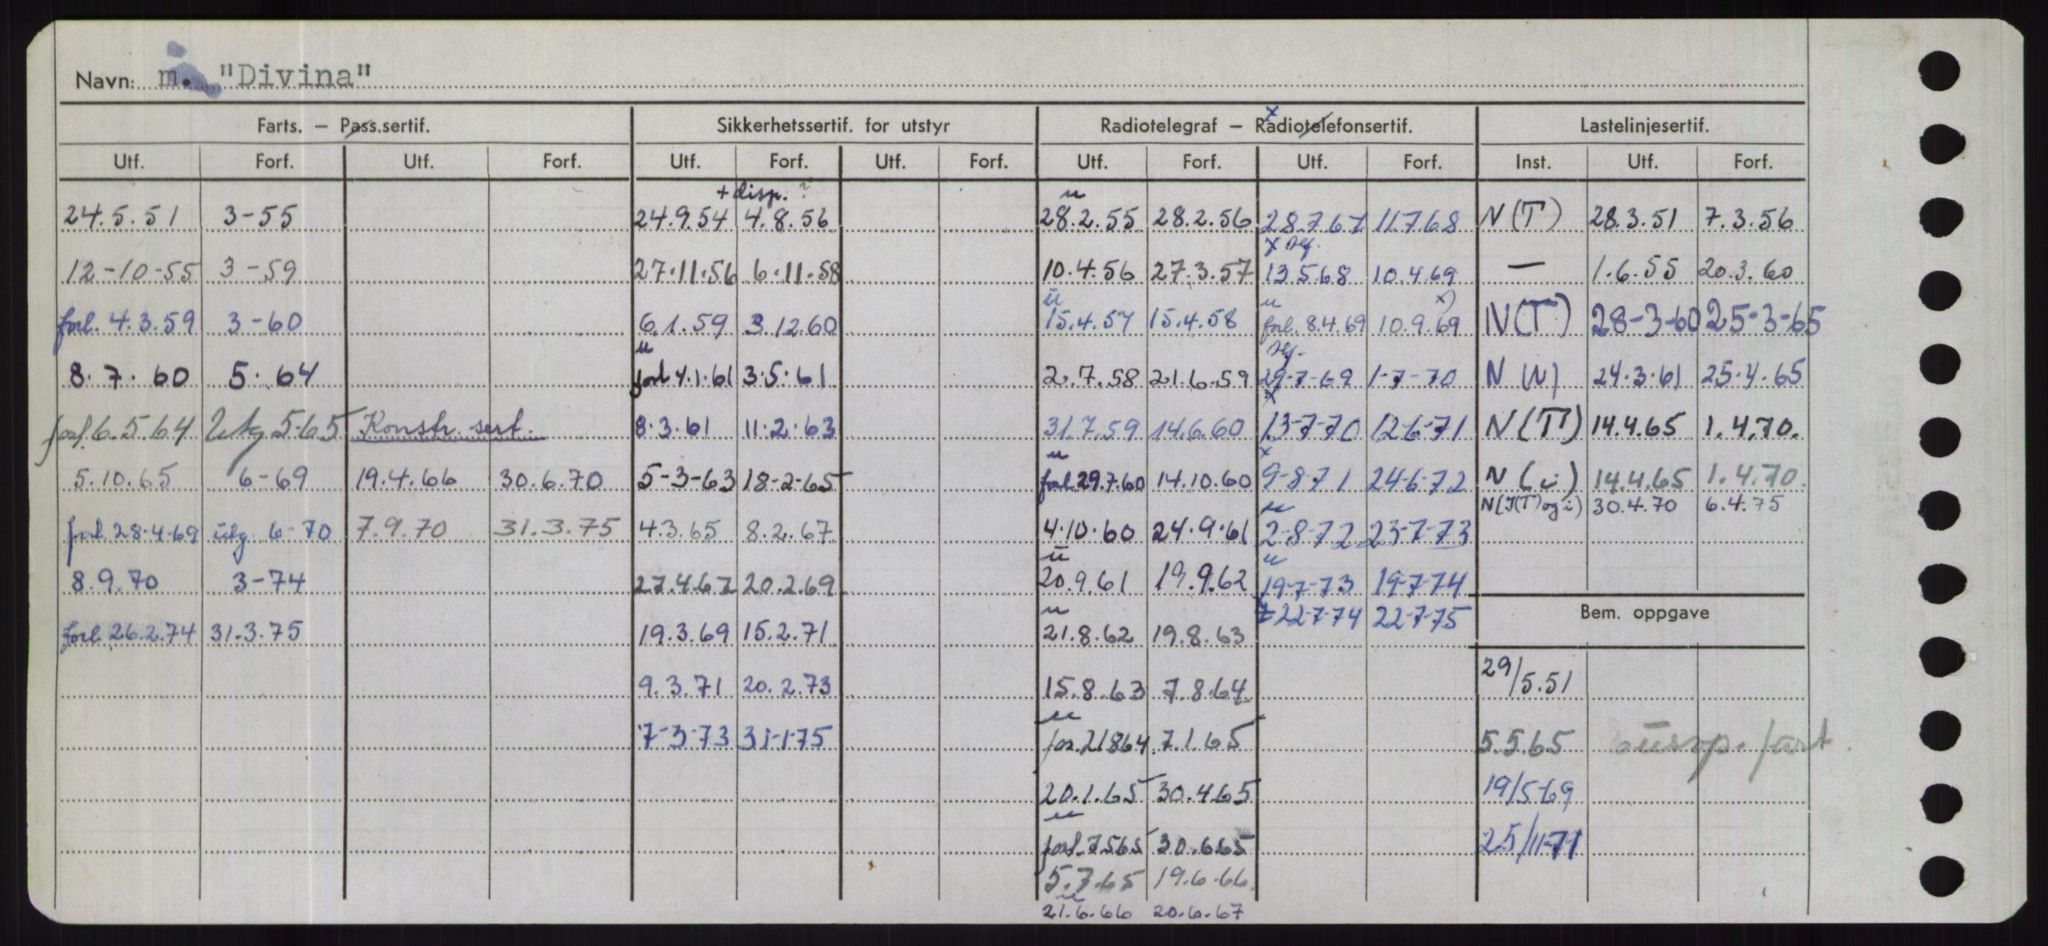 Navn: m. "Divina"
Farts. — Pass.sertif. Sikkerhetssertif. for utstyr Radiotelegraf — Radiotelefonsertif. Lastelinjesertif.
Utf. Forf. Utf. Forf. Utf. Forf. Utf. Forf. Utf. Forf. Utf. Forf. Inst. Utf. Forf.
+ disp. ? u
24.5.51 3-55 24.9.54 4.8.56 28.2.55 28.2.56 28.7.67 11.7.68 N(T) 28.3.51 7.3.56
12-10-55 3-59 27.11.56 6.11.58 10.4.56 27.3.57 13.5.68 10.4.69 — 1.6.55 20.3.60
forl. 4.3.59 3-60 6.1.59 3.12.60 15.4.57 15.4.58 forl. 8.4.69 10.9.69 N(T) 28-3-60 25-3-65
8.7.60 5.64 forl 4.1.61 3.5.61 2.7.58 21.6.59 29-7-69 1-7-70 N 24.3.61 25.4.65
forl 6.5.64 5-65 Konstr. sert. 8.3.61 11.2.63 31.7.59 14.6.60 13-7-70 12-6-71 N(T) 14.4.65 1.4.70.
5.10.65 6-69 19.4.66 30.6.70 5-3-63 18-2-65 forl 29.7.60 14.10.60 9-8-71 24-6-72 N(i) 14.4.65 1.4.70.
N(T) og i) 30.4.70 6.4.75
forl 28.4.69 utg 6-70 7.9.70 31.3.75 4.3.65 8.2.67 4.10.60 24.9.61 2-8-72 23-7-73
8.9.70 3-74 27.4.67 20.2.69 20.9.61 19.9.62 19-7-73 19-7-74
22-7-74 22-7-75 Bem. oppgave
forl. 26.2.74 31.3.75 19.3.69 15.2.71 21.8.62 19.8.63
9.3.71 20.2.73 15.8.63 7.8.64 29/5.51
7-3-73 31-1-75 for. 21864 7.1.65 5.5.65 europ. fart
20.1.65 30.4.65 19/5-69
forl. 7565 30.6.65 25/11-71
5.7.65 19.6.66
21.6.66 20.6.67